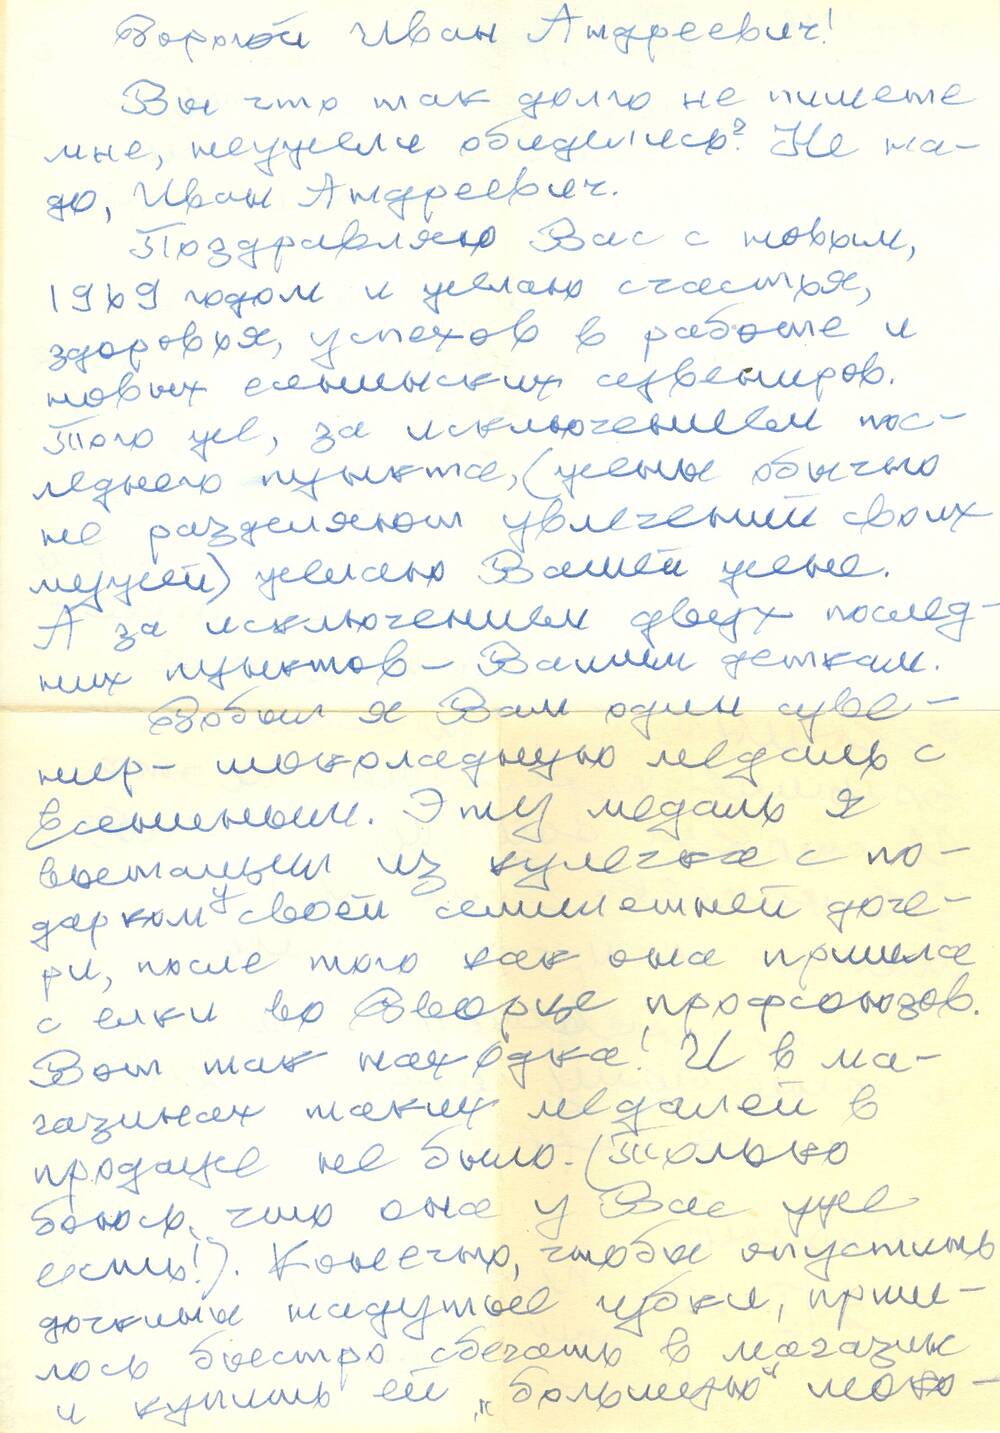 Дорогой Иван Андреевич!
Вы что так долго не пишете
мне, неужели обиделись? Не на-
до, Иван Андреевич.
Поздравляю Вас с новым,
1969 годом и желаю счастья,
здоровья, успехов в работе и
новых есенинских сувениров.
Того же, за исключением пос-
леднего пункта, (жены обычно
не разделяют увлечений своих
мужей) желаю Вашей жене.
А за исключением двух послед-
них пунктов – Вашим деткам.
Добыл я Вам один суве-
нир – шоколадную медаль с
Есениным. Эту медаль я
вытащил из кулечка с по-
дарком у своей семилетней доче-
ри, после того как она пришла
с елки во Дворце профсоюзов.
Вот так находка! И в ма-
газинах таких медалей в
продаже не было. (Только
боюсь, что она у Вас уже
есть!). Конечно, чтобы опустить
дочкины надутые губки, приш-
лось быстро сбегать в магазин
и купить ей „большую" шоко-